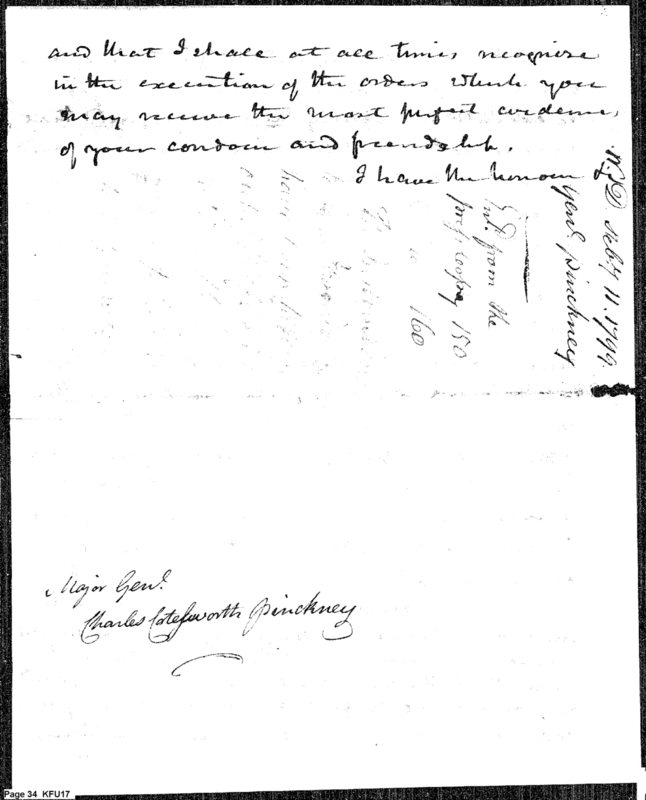 and that I shall at all times recognise
in the execution of the orders which you
may receive the most perfect evidence
of your candour and friendship.
I have the honour
Feby 11. 1799.
Genl. Pinckney
from the
150
160
Major Genl.
Charles Cotesworth Pinckney
Page 34 KFU17